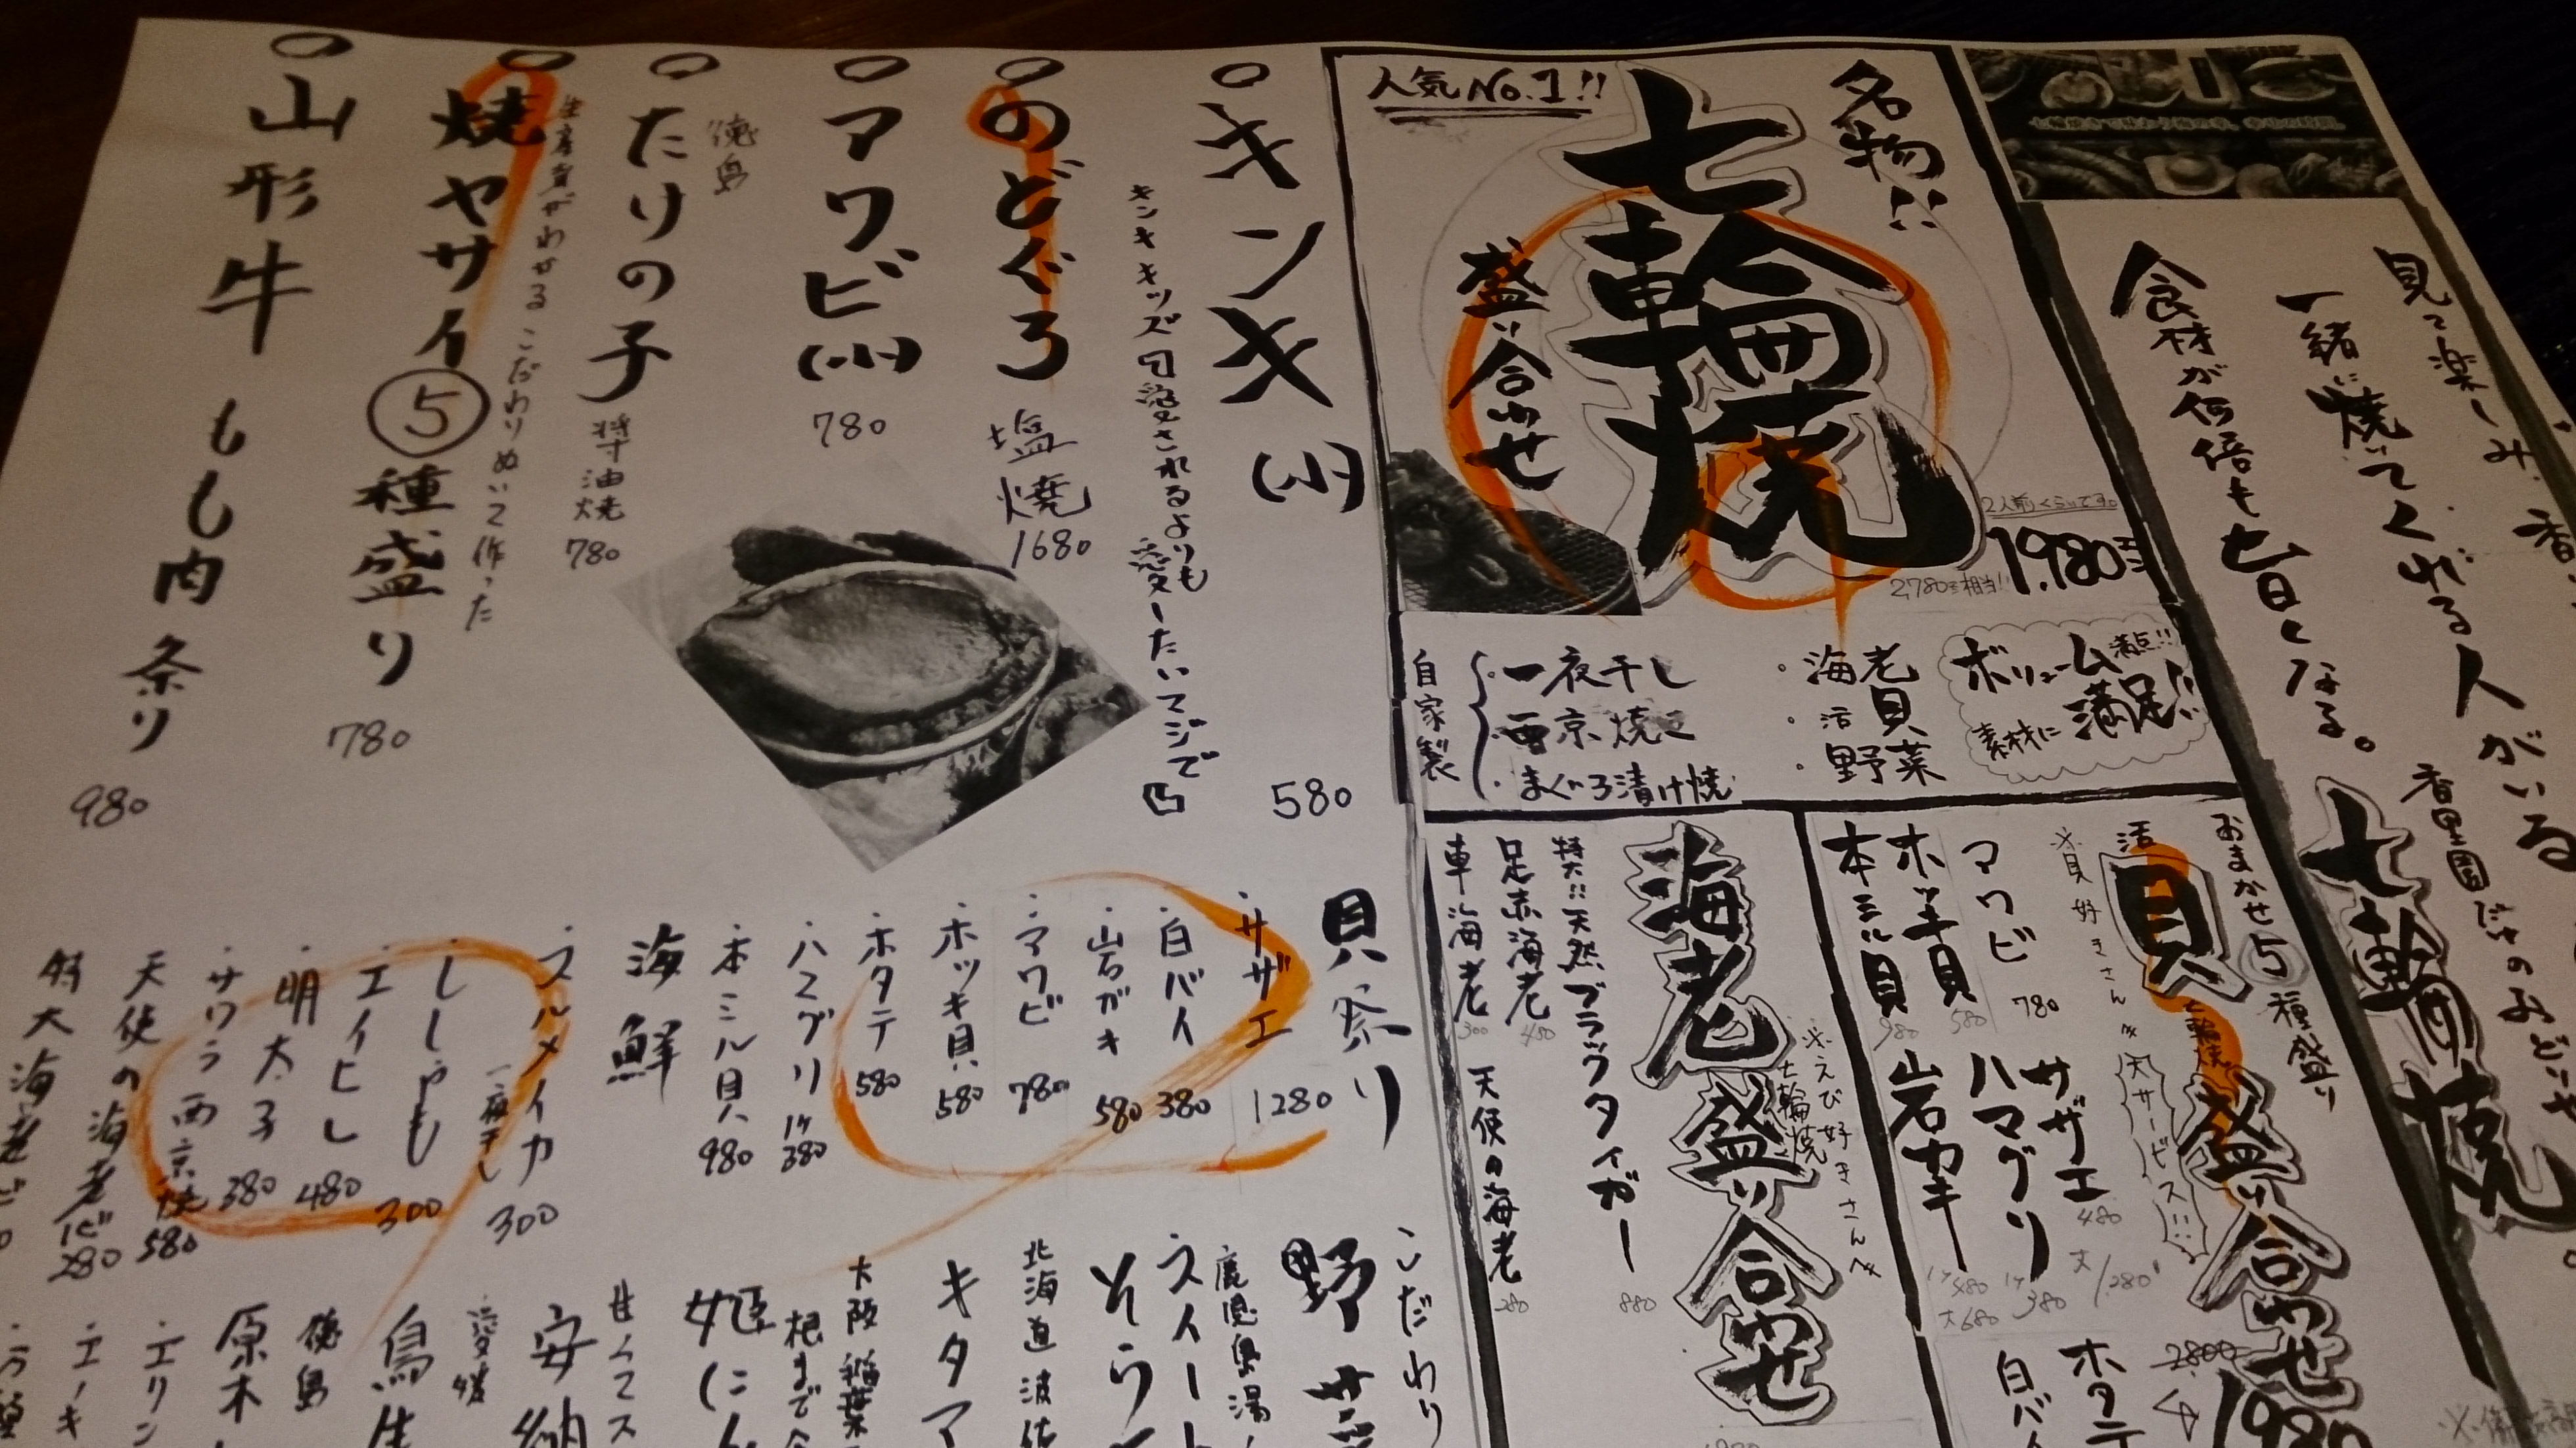 見て楽しみ、香
一緒に焼いてくれる人がいる
食材が何倍も旨くなる。
香里園
七輪焼。
名物!!
人気No.1!!
七輪焼
盛り合わせ
2人前くらいです。
1,980
2,780
相当!!
ボリューム満点!!
素材に満足!!
・海老
・活貝
・野菜
自家製
・一夜干し
・西京焼き
・まぐろ漬け焼
おまかせ5種盛り
活貝
七輪焼
盛り合わせ
※貝好きさん
大サービス!!
2800
1980
アワビ 780
ホッキ貝 580
本ミル貝 980
サザエ 480
大1280
ハマグリ 1ケ380
岩カキ 1ケ480
大680
ホタテ
白バイ
海老
盛り合わせ
※えび好きさん
七輪焼
特大!!天然ブラックタイガー 880
足赤海老 480
車海老 300
天使の海老 280
○キンキ(小) 580
キンキキッズ
愛されるよりも愛したいマジで
○のどぐろ 塩焼 1680
○アワビ(小) 780
徳島
○たけの子 醤油焼 780
生産者がわかるこだわりぬいて作った
○焼ヤサイ⑤種盛り 780
○山形牛もも肉 祭り 980
貝祭り
・サザエ 1280
・白バイ 380
・岩ガキ 580
・アワビ 780
・ホッキ貝 580
・ホタテ 580
・ハマグリ 1ケ380
・本ミル貝 980
海鮮
・スルメイカ 一夜干し 300
・ししゃも 300
・エイヒレ 480
・明太子 380
・サワラ西京焼 580
天使の海老 1ピ280
特大海老
こだわり
野サ
鹿児島
スイート
そら
北海道
キタア
大阪 稲葉
根まで
姫に
甘くてス
安納
愛媛
鳥生
徳島
原木
・エリン
・エノキ
・万願